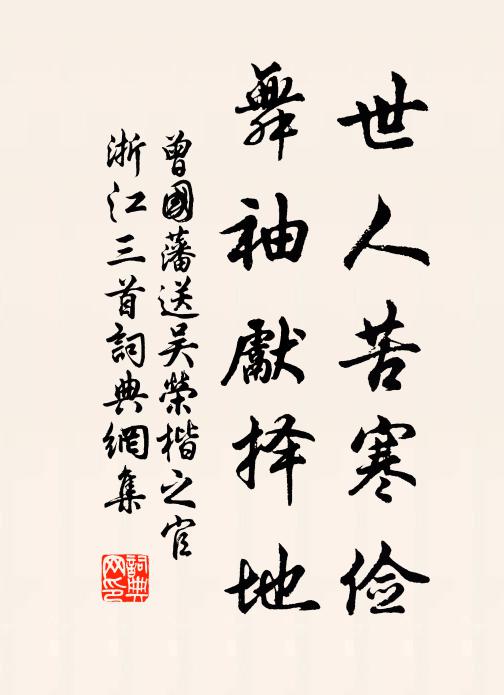 世人苦寒俭
舞袖献择地
曾國藩送吴榮楷之官
浙江三首詞典網集
詞典
网印